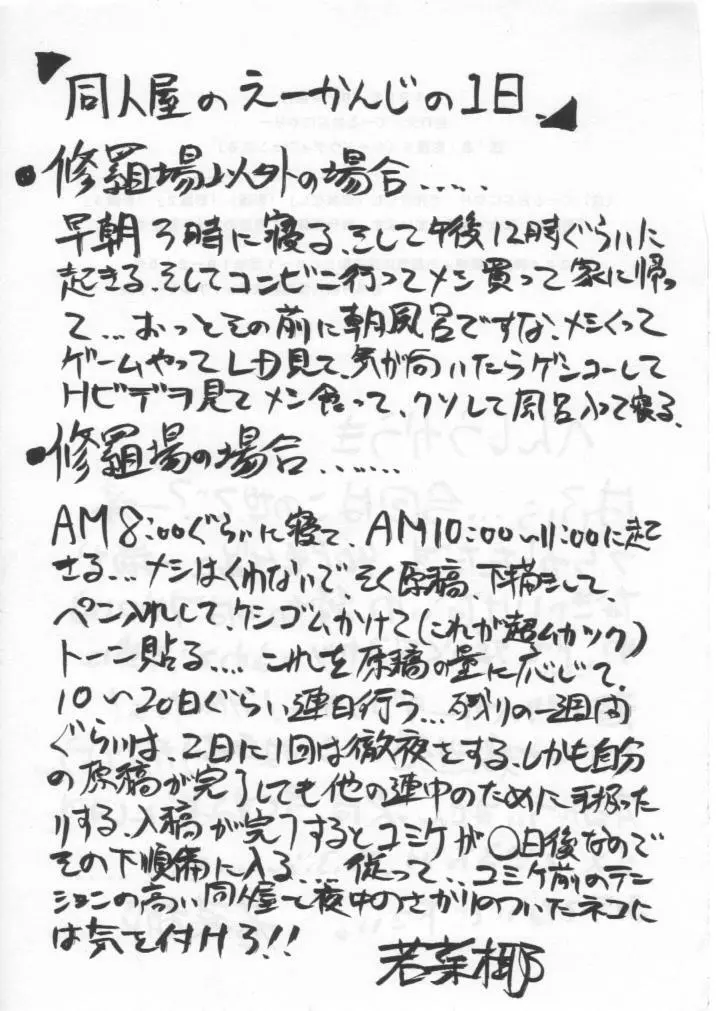 同人屋のえーかんじの1日
●修羅場以外の場合.....
早朝3時に寝る、そして午後12時ぐらいに
起きる、そしてコンビニ行ってメシ買って家に帰っ
て...おっとその前に朝風呂ですな、メシくって
ゲームやってLD見て、気が向いたらゲンコーして
Hビデヲ見てメシ食って、クソして風呂入って寝る、
●修羅場の場合.......
AM8:00ぐらいに寝て、AM10:00〜11:00に起
きる...メシはくわないでそく原稿、下描きして、
ペン入れして、ケシゴムかけて(これが超ムカツク)
トーン貼る.... これを原稿の量に応じて、
10〜20日ぐらい連日行う...残りの一週間
ぐらいは、2日に1回は徹夜をする、しかも自分
の原稿が完了しても他の連中のために手伝った
りする、入稿が完了するとコミケが○日後なので
その下準備に入る.... 従って...コミケ前のテン
ションの高い同人屋と夜中のさかりのついたネコに
は気を付けろ!!
若菜椰